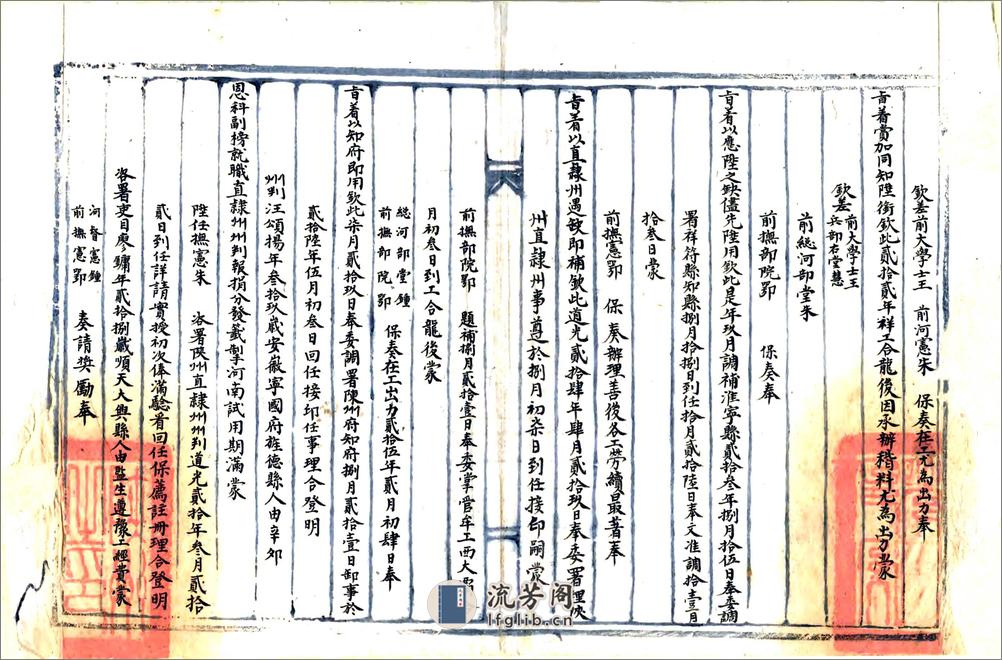 欽差前大學士王 前河憲朱 保奏在工尤為出力奉
旨着賞加同知陞銜欽此貳拾貳年祥工合龍後因承辦稽料尤為出力蒙
欽差前大學士王
兵部右堂慧
前總河部堂朱
前撫部院鄂 保奏奉
旨着以應陞之缺儘先陞用欽此是年玖月調補淮寧縣貳拾叁年捌月拾伍日奉委調
署祥符縣知縣捌月拾捌日到任拾月貳拾陸日奉文准調拾壹月
拾叁日蒙
前撫憲鄂 保奏辦理善後各工勞績最著奉
旨着以直隸州遇缺即補欽此道光貳拾肆年肆月貳拾玖日奉委署理陝
州直隸州事遵於捌月初柒日到任接印嗣蒙
前撫部院鄂 題補捌月貳拾壹日奉委掌管牟工西大
月初叁日到工合龍後蒙
總河部堂鍾
前撫部院鄂 保奏在工出力貳拾伍年貳月初肆日奉
旨着以知府即用欽此柒月貳拾玖日奉委調署陳州府知府捌月貳拾壹日卸事於
貳拾陸年伍月初叁日回任接印任事理合登明
州判汪頌揚年叁拾玖歲安徽寧國府旌德縣人由辛卯
恩科副榜就職直隸州州判報捐分發籤掣河南試用期滿蒙
陞任撫憲朱 咨署陝州直隸州州判道光貳拾年叁月貳拾
貳日到任詳請實授初次俸滿驗看回任保薦註冊理合登明
咨署吏目廖鏞年貳拾捌歲順天大興縣人由監生遵豫工經費蒙
河督憲鍾
前撫憲鄂 奏請獎勵奉
流芳阁
lfglib.cn